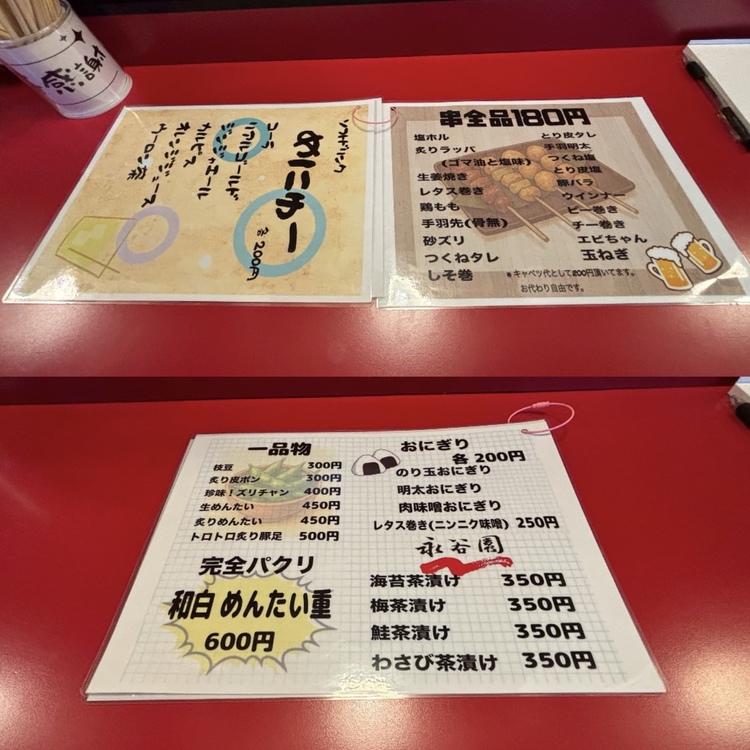 感謝
ソフトドリンク
めにゅー
各200円
コーラ
リアルゴールド
ジンジャエール
カルピス
オレンジジュース
ウーロン茶
串全品180円
塩ホル
炙りラッパ
(ゴマ油と塩味)
生姜焼き
レタス巻き
鶏もも
手羽先(骨無)
砂ズリ
つくねタレ
しそ巻
とり皮タレ
手羽明太
つくね塩
とり皮塩
豚バラ
ウインナー
ピー巻き
チー巻き
エビちゃん
玉ねぎ
※キャベツ代として200円頂いてます。
お代わり自由です。
一品物
枝豆 300円
炙り皮ポン 300円
珍味!ズリチャン 400円
生めんたい 450円
炙りめんたい 450円
トロトロ炙り豚足 500円
完全パクリ
和白 めんたい重
600円
おにぎり
各200円
のり玉おにぎり
明太おにぎり
肉味噌おにぎり
レタス巻き(ニンニク味噌) 250円
永谷園
海苔茶漬け 350円
梅茶漬け 350円
鮭茶漬け 350円
わさび茶漬け 350円